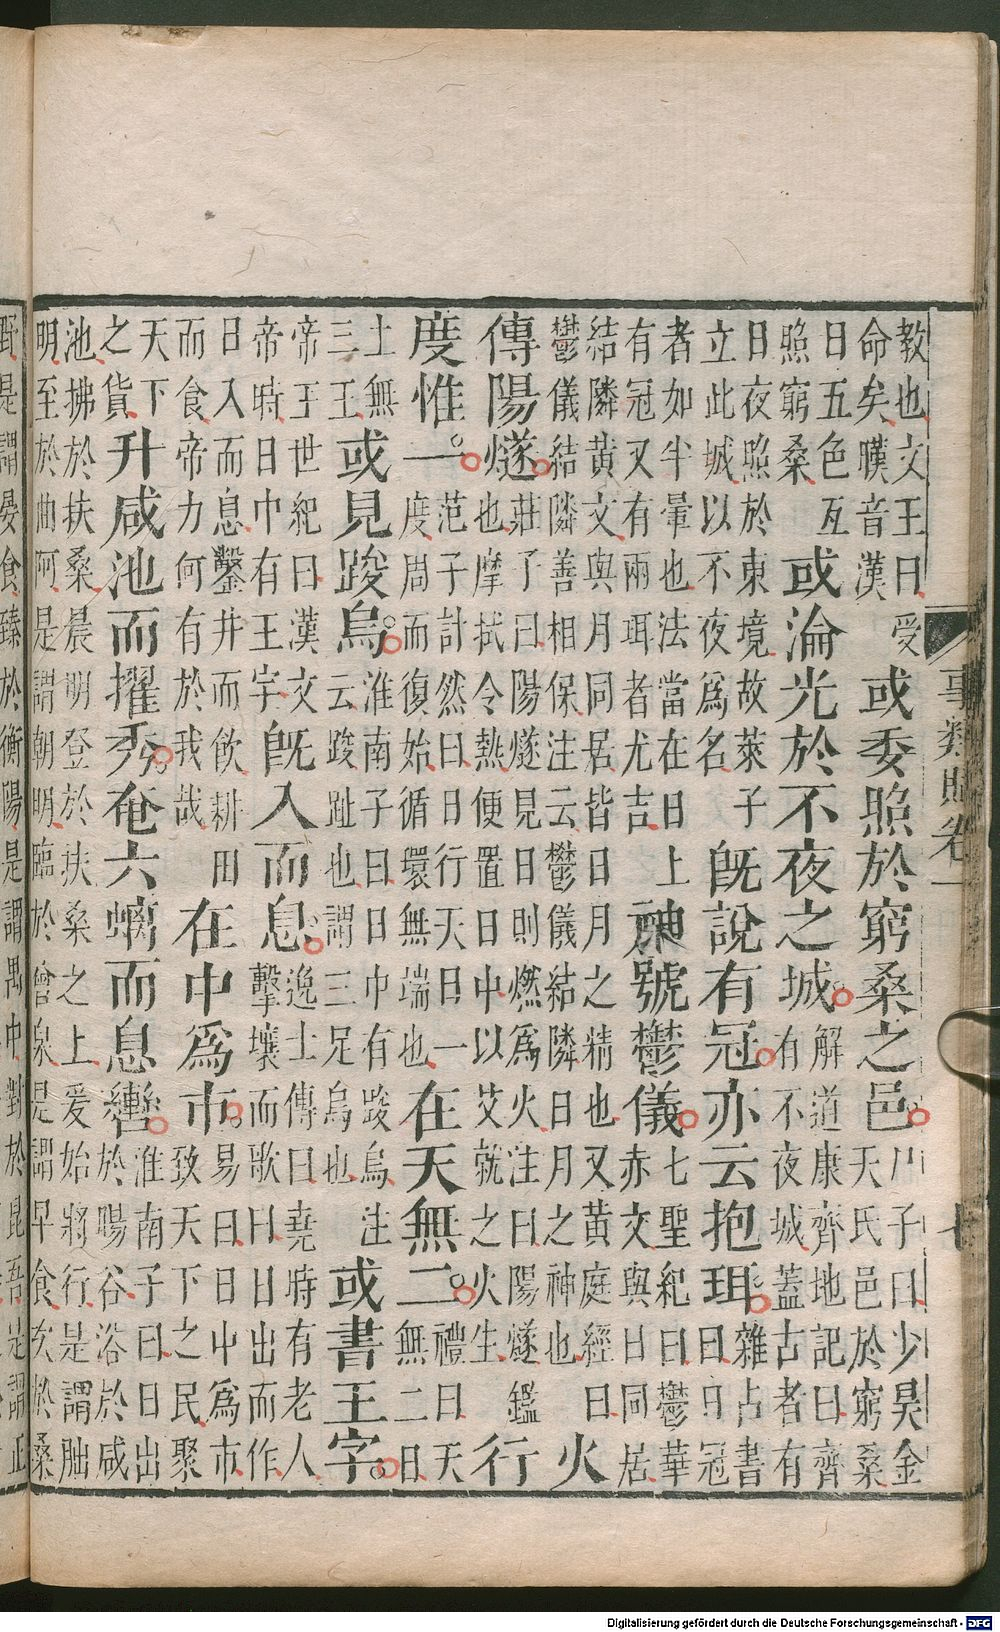 事類賦卷一　七
教也文王曰受
命矣嘆音漢
或委照於窮桑之邑
尸子曰少昊金
天氏邑於窮桑
日五色互
照窮桑
或淪光於不夜之城
解道康齊地記曰齊
有不夜城蓋古者有
日夜照於東境故萊子
立此城以不夜爲名
既說有冠亦云抱珥
雜占書
曰日冠
者如半暈也法當在日上
有冠又有兩珥者尤吉
神號鬱儀
七聖紀曰鬱華
赤文與日同居
結隣黃文與月同居皆日月之精也又黃庭經曰
鬱儀結隣善相保注云鬱儀結隣日月之神也
火
傳陽燧
莊子曰陽燧見日則燃爲火注曰陽燧鑑
也摩拭令熱便置日中以艾就之火生
行
度惟一
范子計然曰日行天日一
度周而復始循環無端也
在天無二
禮曰天
無二日
土無
三王
或見踆烏
淮南子曰日中有踆烏注
云踆趾也謂三足烏也
或書王字
帝王世紀曰漢文
帝時日中有王字
既入而息
逸士傳曰堯時有老人
擊壤而歌曰日出而作
日入而息鑿井而飲耕田
而食帝力何有於我哉
在中爲市
易曰日中爲市
致天下之民聚
天下
之貨
升咸池而擢秀奄六螭而息轡
淮南子曰日出
於暘谷浴於咸
池拂於扶桑晨明登於扶桑之上爰始將行是謂朏
明至於曲阿是謂朝明臨於曾泉是謂早食次於桑
野是謂晏食臻於衡陽是謂禺中對於昆吾是謂正
Digitalisierung gefördert durch die Deutsche Forschungsgemeinschaft - DFG